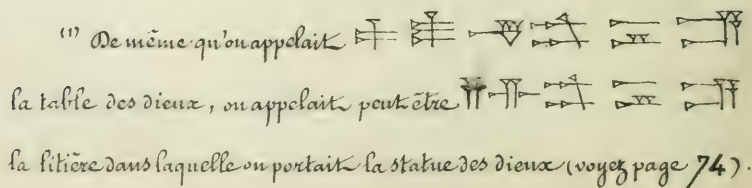 (1) De même qu'on appelait
la table des dieux, on appelait peut être
la litière dans laquelle on portait la statue des dieux (voyez page 74).